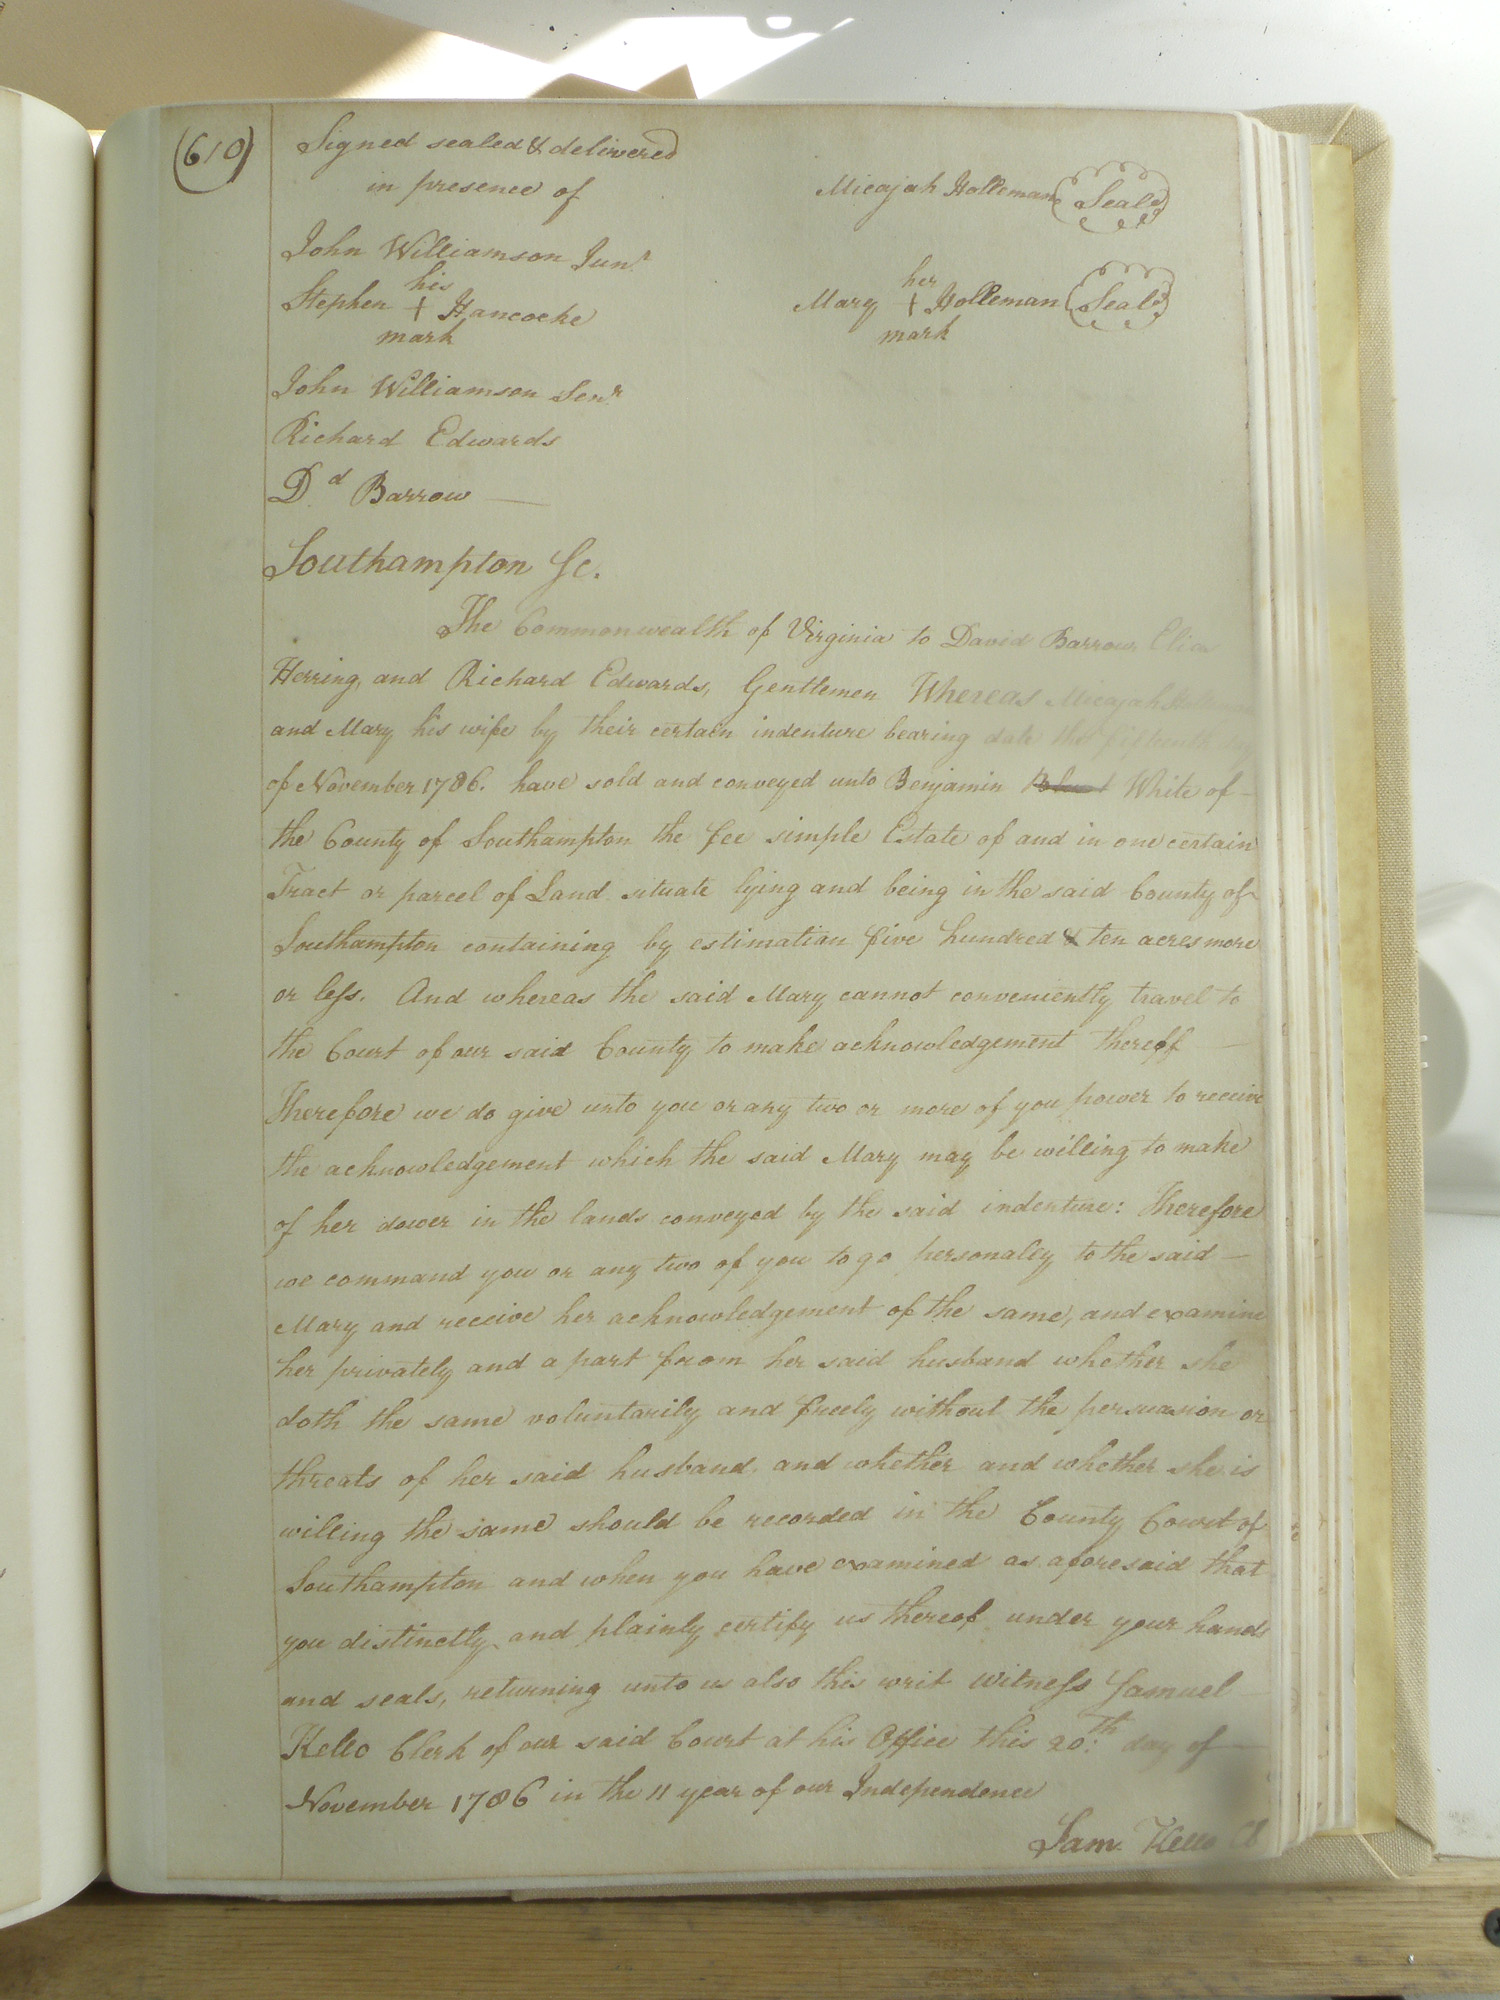 (610)
Signed sealed & delivered
in presence of
Micajah Holleman Seal
John Williamson Junr.
his
Stephen + Hancocke
mark
her
Mary + Holleman Seal
mark
John Williamson Senr.
Richard Edwards
Dd. Barrow
Southampton Sc.
The Commonwealth of Virginia to David Barrow, Elias
Herring, and Richard Edwards, Gentlemen Whereas Micajah Holleman
and Mary his wife by their certain indenture bearing date the fifteenth
of November 1786. have sold and conveyed unto Benjamin White of
the County of Southampton the fee simple Estate of and in one certain
Tract or parcel of Land situate lying and being in the said County of
Southampton containing by estimation five hundred & ten acres more
or less. And whereas the said Mary cannot conveniently travel to
the Court of our said County to make acknowledgement thereof
Therefore we do give unto you or any two or more of you power to receive
the acknowledgement which the said Mary may be willing to make
of her dower in the lands conveyed by the said indenture: Therefore
we command you or any two of you to go personally to the said
Mary and receive her acknowledgement of the same, and examine
her privately and a part from her said husband whether she
doth the same voluntarily and freely without the persuasion or
threats of her said husband. and whether and whether she is
willing the same should be recorded in the County Court of
Southampton and when you have examined as aforesaid that
you distinctly and plainly certify us thereof under your hands
and seals, returning unto us also this writ Witness Samuel
Kello Clerk of our said Court at his Office this 20th. day of
November 1786 in the 11 year of our Independence
Sam. Kello Cl